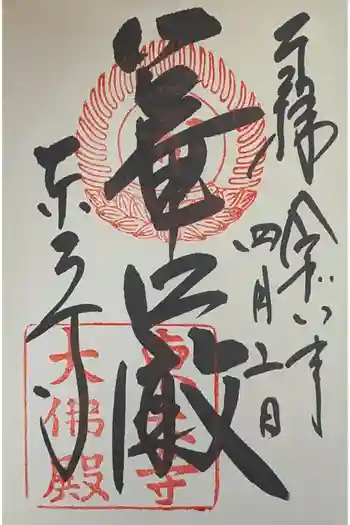 奉拝
令和六年
四月 日
華嚴
東大寺
東大寺
大佛殿